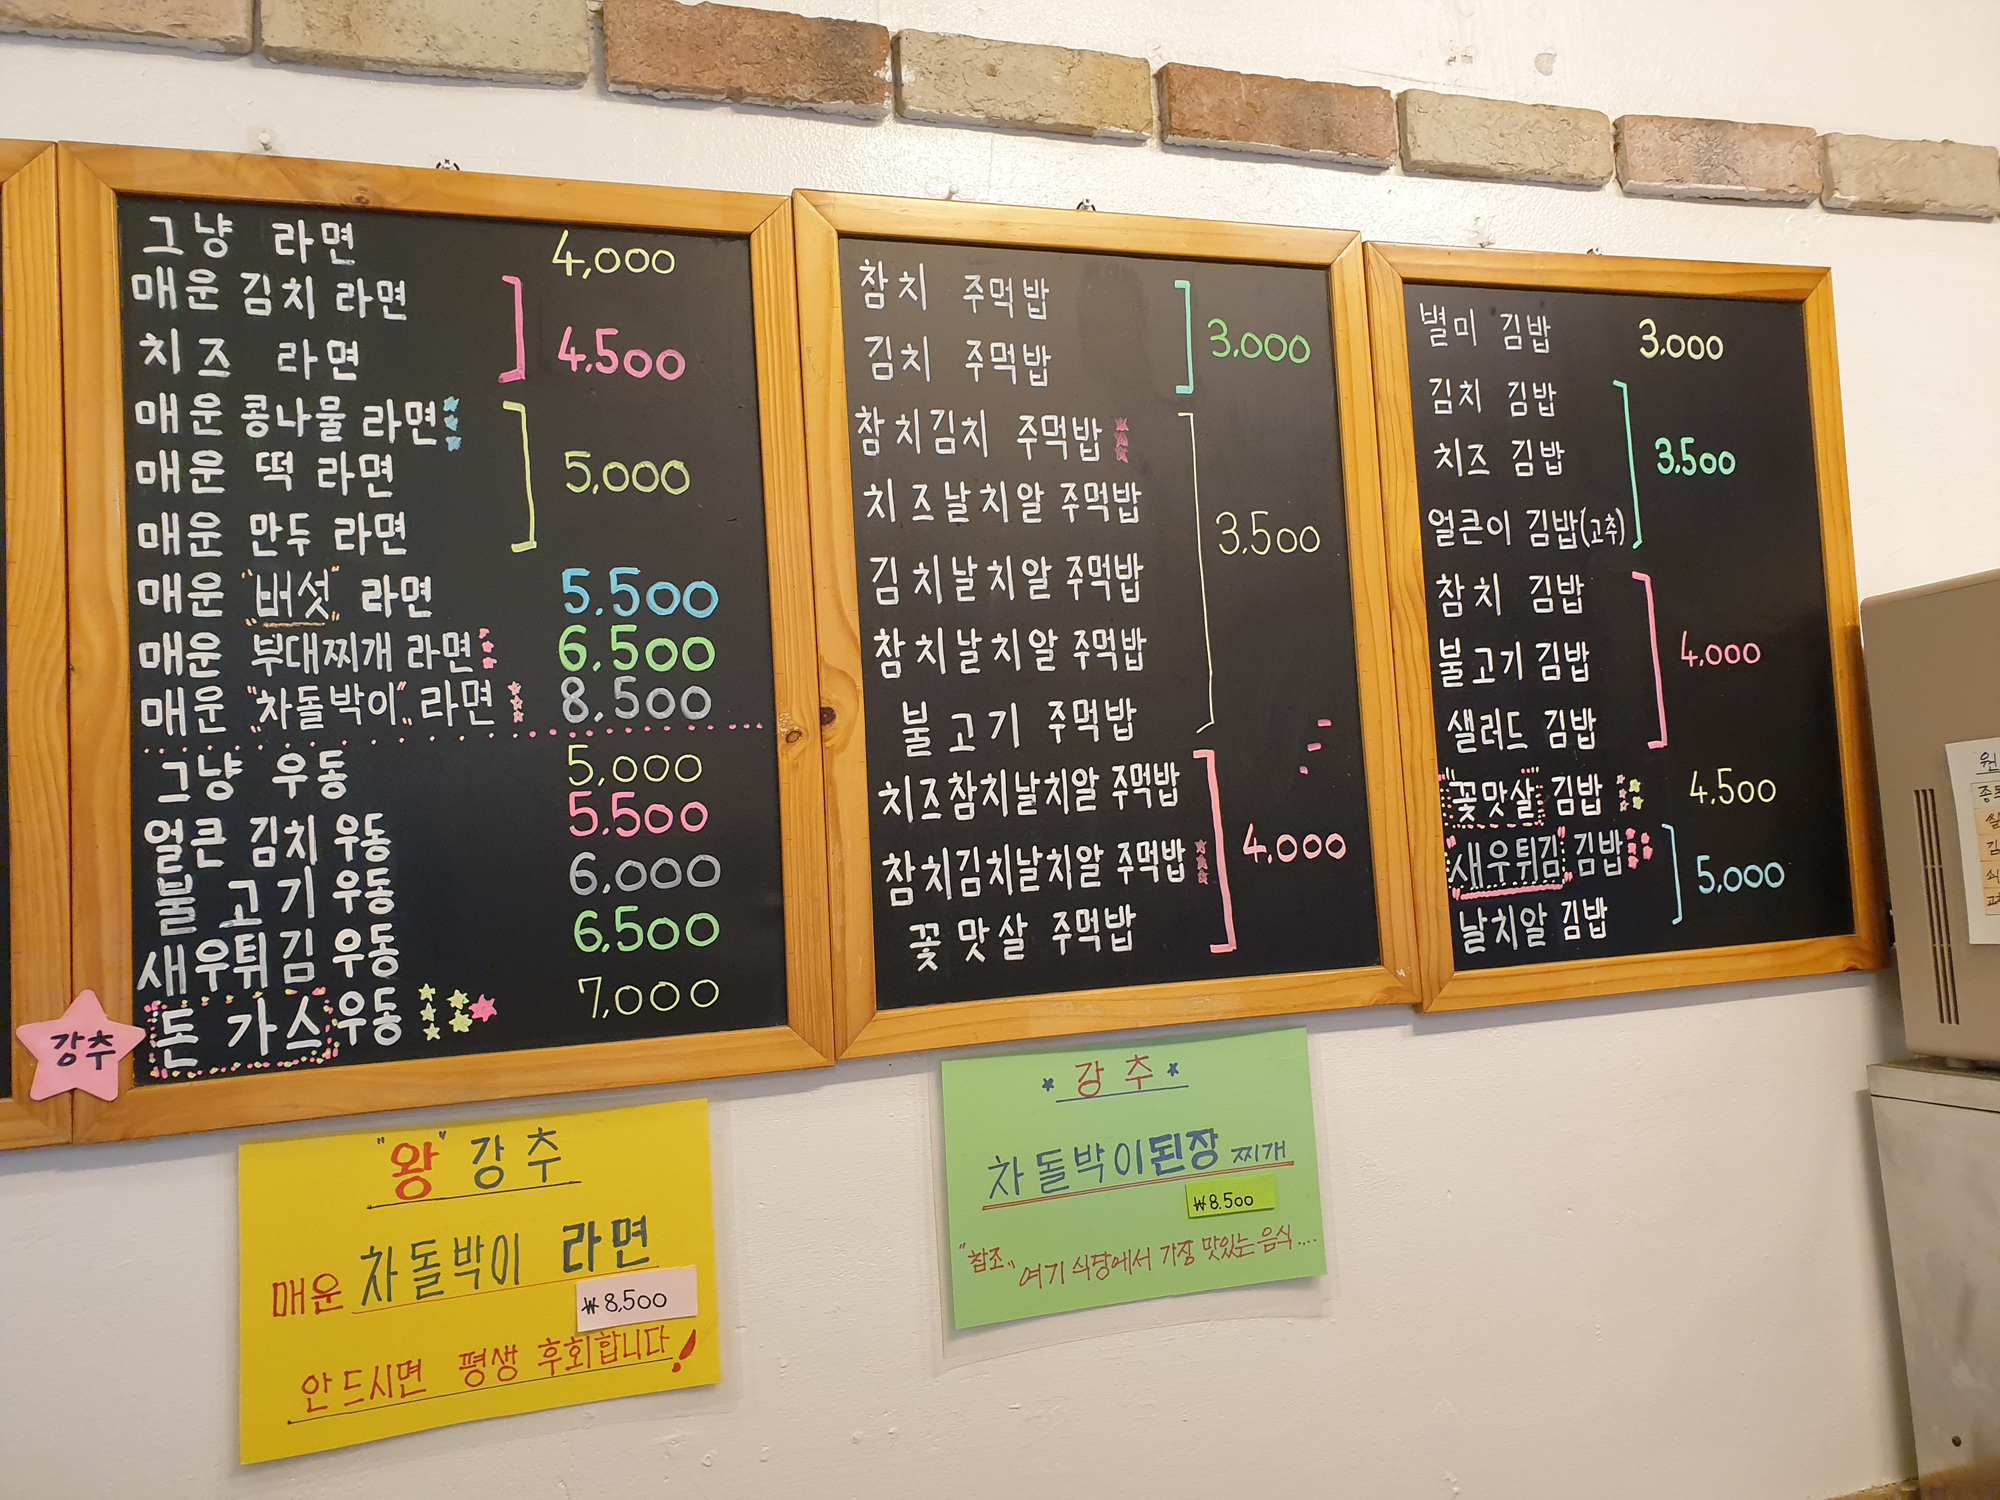 그냥 라면 4,000
매운 김치 라면
치즈 라면
4,500
매운 콩나물 라면
매운 떡 라면
매운 만두 라면
5,000
매운 "버섯" 라면 5,500
매운 부대찌개 라면 6,500
매운 "차돌박이" 라면 8,500
그냥 우동 5,000
얼큰 김치 우동 5,500
불고기 우동 6,000
새우튀김 우동 6,500
돈가스 우동 7,000
강추
참치 주먹밥
김치 주먹밥
3,000
참치김치 주먹밥
치즈날치알 주먹밥
김치날치알 주먹밥
참치날치알 주먹밥
불고기 주먹밥
3,500
치즈참치날치알 주먹밥
참치김치날치알 주먹밥
꽃맛살 주먹밥
4,000
별미 김밥 3,000
김치 김밥
치즈 김밥
얼큰이 김밥(고추)
3,500
참치 김밥
불고기 김밥
샐러드 김밥
4,000
"꽃맛살" 김밥 4,500
"새우튀김" 김밥
날치알 김밥
5,000
"왕" 강추
매운 차돌박이 라면
₩8,500
안 드시면 평생 후회합니다!
강추
차돌박이된장 찌개
₩8,500
"참조" 여기 식당에서 가장 맛있는 음식....